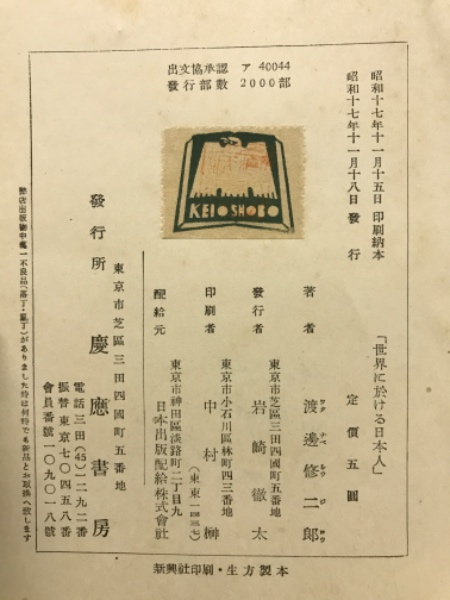 出文協承認 ア 40044
發行部數 2000部
昭和十七年十一月十五日 印刷納本
昭和十七年十一月十八日 發行
KEIO SHOBO
「世界に於ける日本人」
定價五圓
著者 渡邊修二郎
東京市芝區三田四國町五番地
發行者 岩崎徹太
東京市小石川區林町四三番地
印刷者 中村榊
(東東一四三七)
東京市神田區淡路町二丁目九
配給元 日本出版配給株式會社
東京市芝區三田四國町五番地
發行所 慶應書房
電話三田(45)一二九二番
振替東京七〇四五八番
會員番號一〇九〇一八號
新興社印刷・生方製本